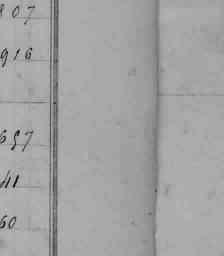 807
916
657
41
60